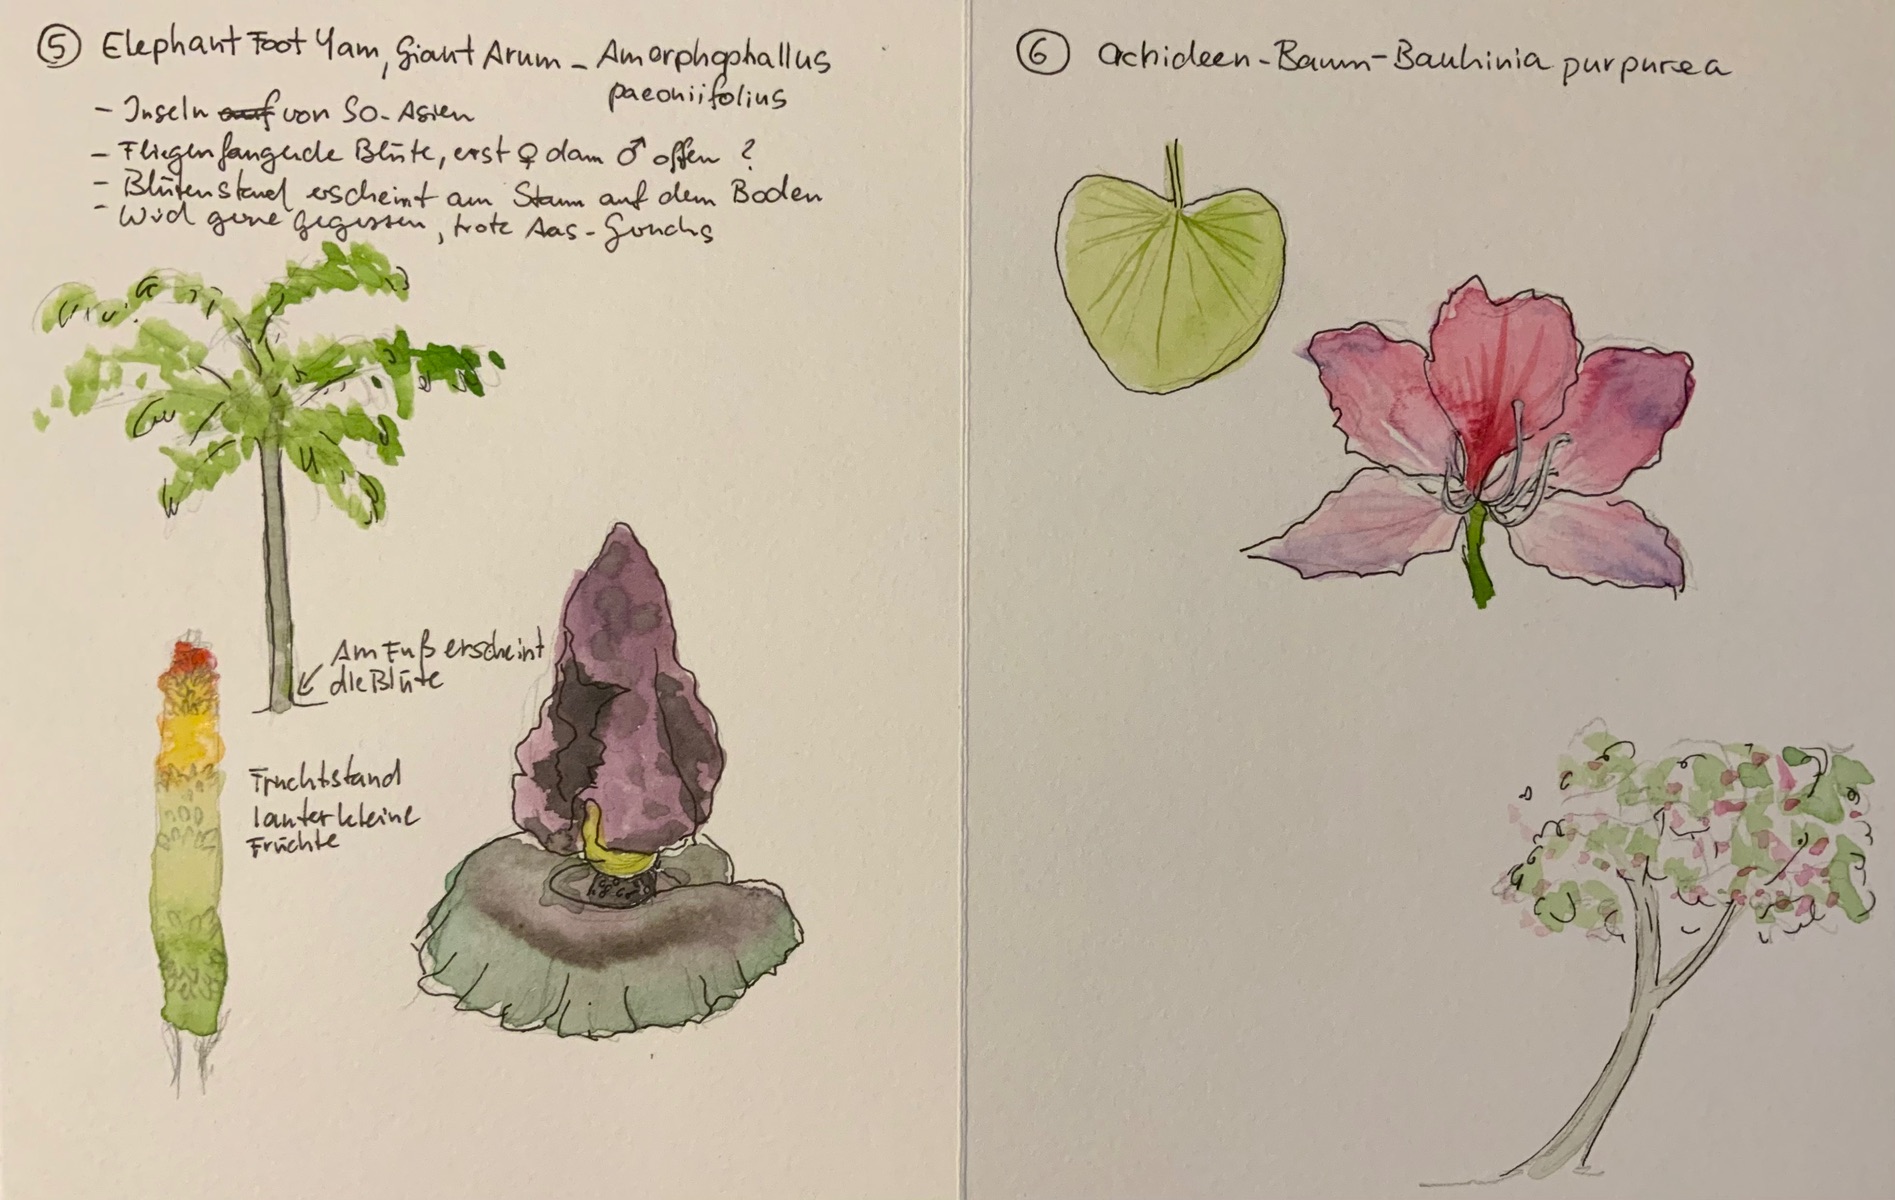 ⑤ Elephant Foot Yam, Giant Arum - Amorphophallus
paeoniifolius
- Inseln auf von SO-Asien
- Fliegenfangende Blüte, erst ♀ dann ♂ offen ?
- Blütenstand erscheint am Stamm auf dem Boden
- Wird gerne gegessen, trotz Aas-Geruchs
Am Fuß erscheint
die Blüte
Fruchtstand
lauter kleine
Früchte
⑥ Orchideen-Baum-Bauhinia purpurea